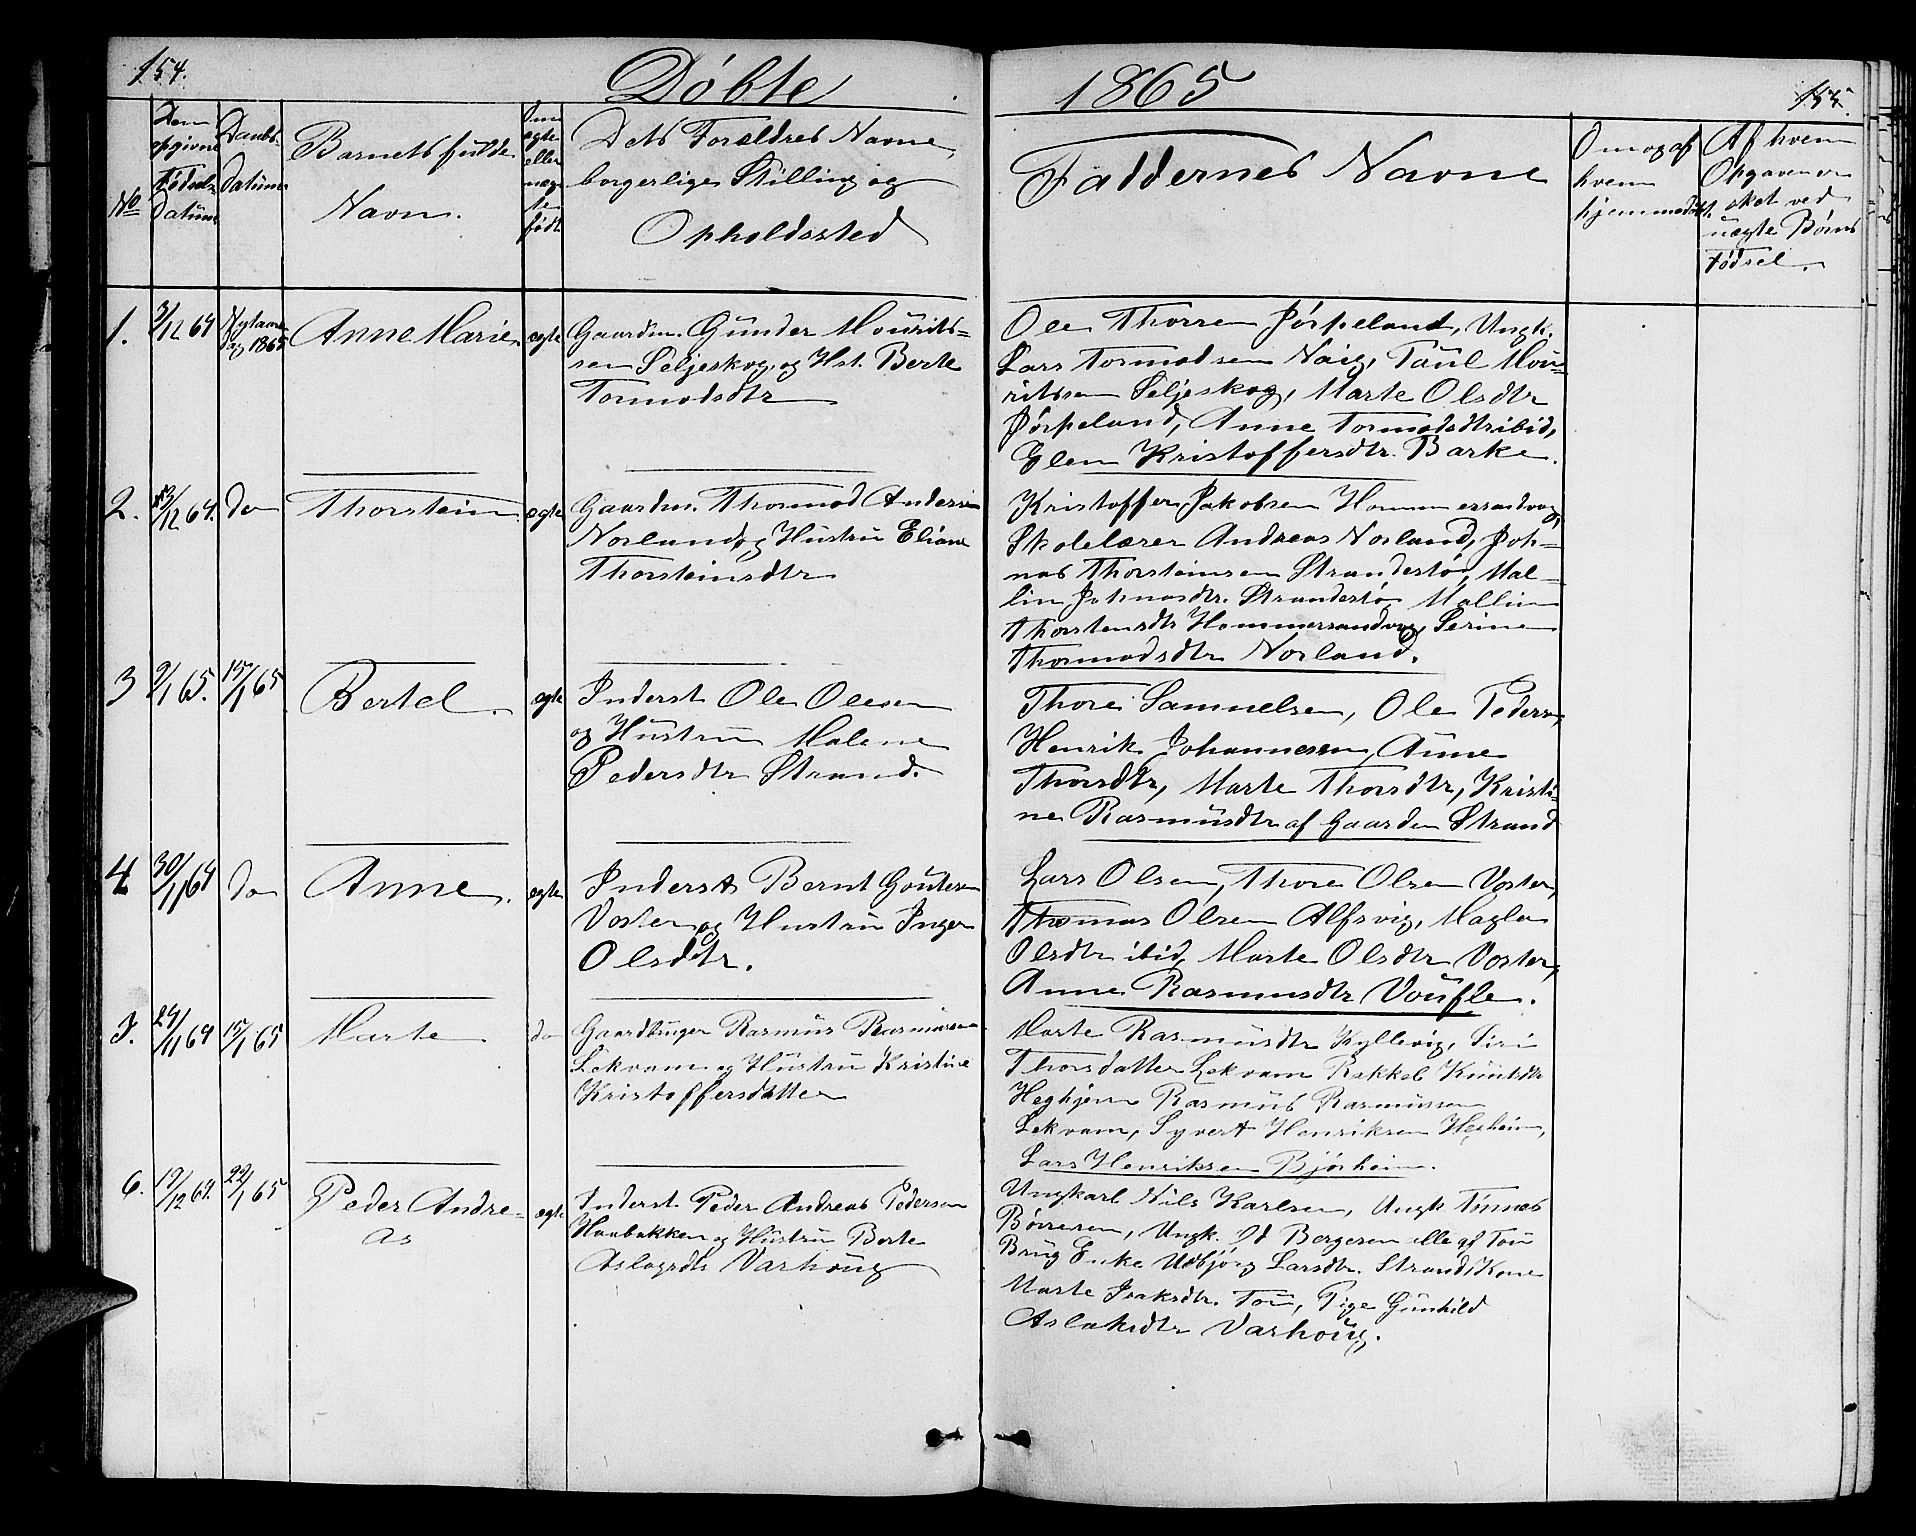 154.
Døbte
1865
155.
No
Den
opgivne
Fødsels
Datum
Daabs
Datum
Barnets fulde
Navn.
Om
ægte
eller
uæg-
te
født
Dets Forældres Navne,
borgerlige Stilling og
Opholdssted
Faddernes Navne
Om og af
hvem
hjemmedøbt.
Af hvem
Opgaven er
sket ved
uægte Børns
Fødsel.
1.
3/12 64
Nytaars-
dag 1865
Anne Marie
ægte
Gaardm. Gunder Mourits-
sen Seljeskog, og Hst. Berte
Tormodsdtr
Ole Thorsen Jørpeland, Ungk.
Lars Tormodsen Naig, Paul Mou-
ritssen Seljeskog, Marte Olsdtr
Jørpeland, Anne Tormodsdtr ibid,
Elen Kristoffersdtr. Barke.
2.
13/12 64.
do
Thorstein
ægte
Gaardm. Thormod Andersen
Norland og Hustru Eliane
Thorsteinsdtr
Kristoffer Jakobsen Hommersandvog,
Skolelærer Andreas Norland, Joh-
nas Thorsteinsen Strandestø, Mal-
lin Johnasdtr. Strandestø Mallin
Thorstensdtr Hommersandvog, Serine
Thormodsdtr Norland.
3
9/1 65.
15/1 65
Bertel.
ægte
Inderst Ole Olesen
og Hustru Malene
Pedersdtr Strand.
Thore Samuelsen, Ole Pedersen,
Henrik Johannesen, Anne
Thorsdtr, Marte Thorsdtr, Kristi-
ne Rasmusdtr af Gaarden Strand
4
30/11 64
do
Anne.
ægte
Inderst Bernt Goutesen
Voster og Hustru Inger
Olsdtr.
Lars Olsen, Thore Olsen Voster,
Thomas Olsen Alfsvig, Magla
Olsdtr ibid, Marte Olsdtr Voster,
Anne Rasmusdtr Voufle.
5.
24/11 64
15/1 65
Marte
do
Gaardbruger Rasmus Rasmussen
Lekvam og Hustru Kristine
Kristoffersdatter
Marte Rasmusdtr Kyllevig, Siri
Thorsdatter Lekvam Rakkel Knutsdtr
Heghjem Rasmus Rasmussen
Lekvam, Syvert Henriksen Hegheim,
Lars Henriksen Bjørheim.
6.
19/12 64.
22/1 65
Peder Andre-
as
ægte
Inderst Peder Andreas Pedersen
Haabakken og Hustru Berte
Aslagsdtr Varhoug
Ungkarl Nils Karlsen, Ungk Tønnes
Børresen, Ungk. Od Bergesen alle af Tou
Brug Enke Udbjørg Larsdtr. Strand, Kone
Marte Isaksdtr. Tou, Pige Gunhild
Aslaksdtr Varhoug.